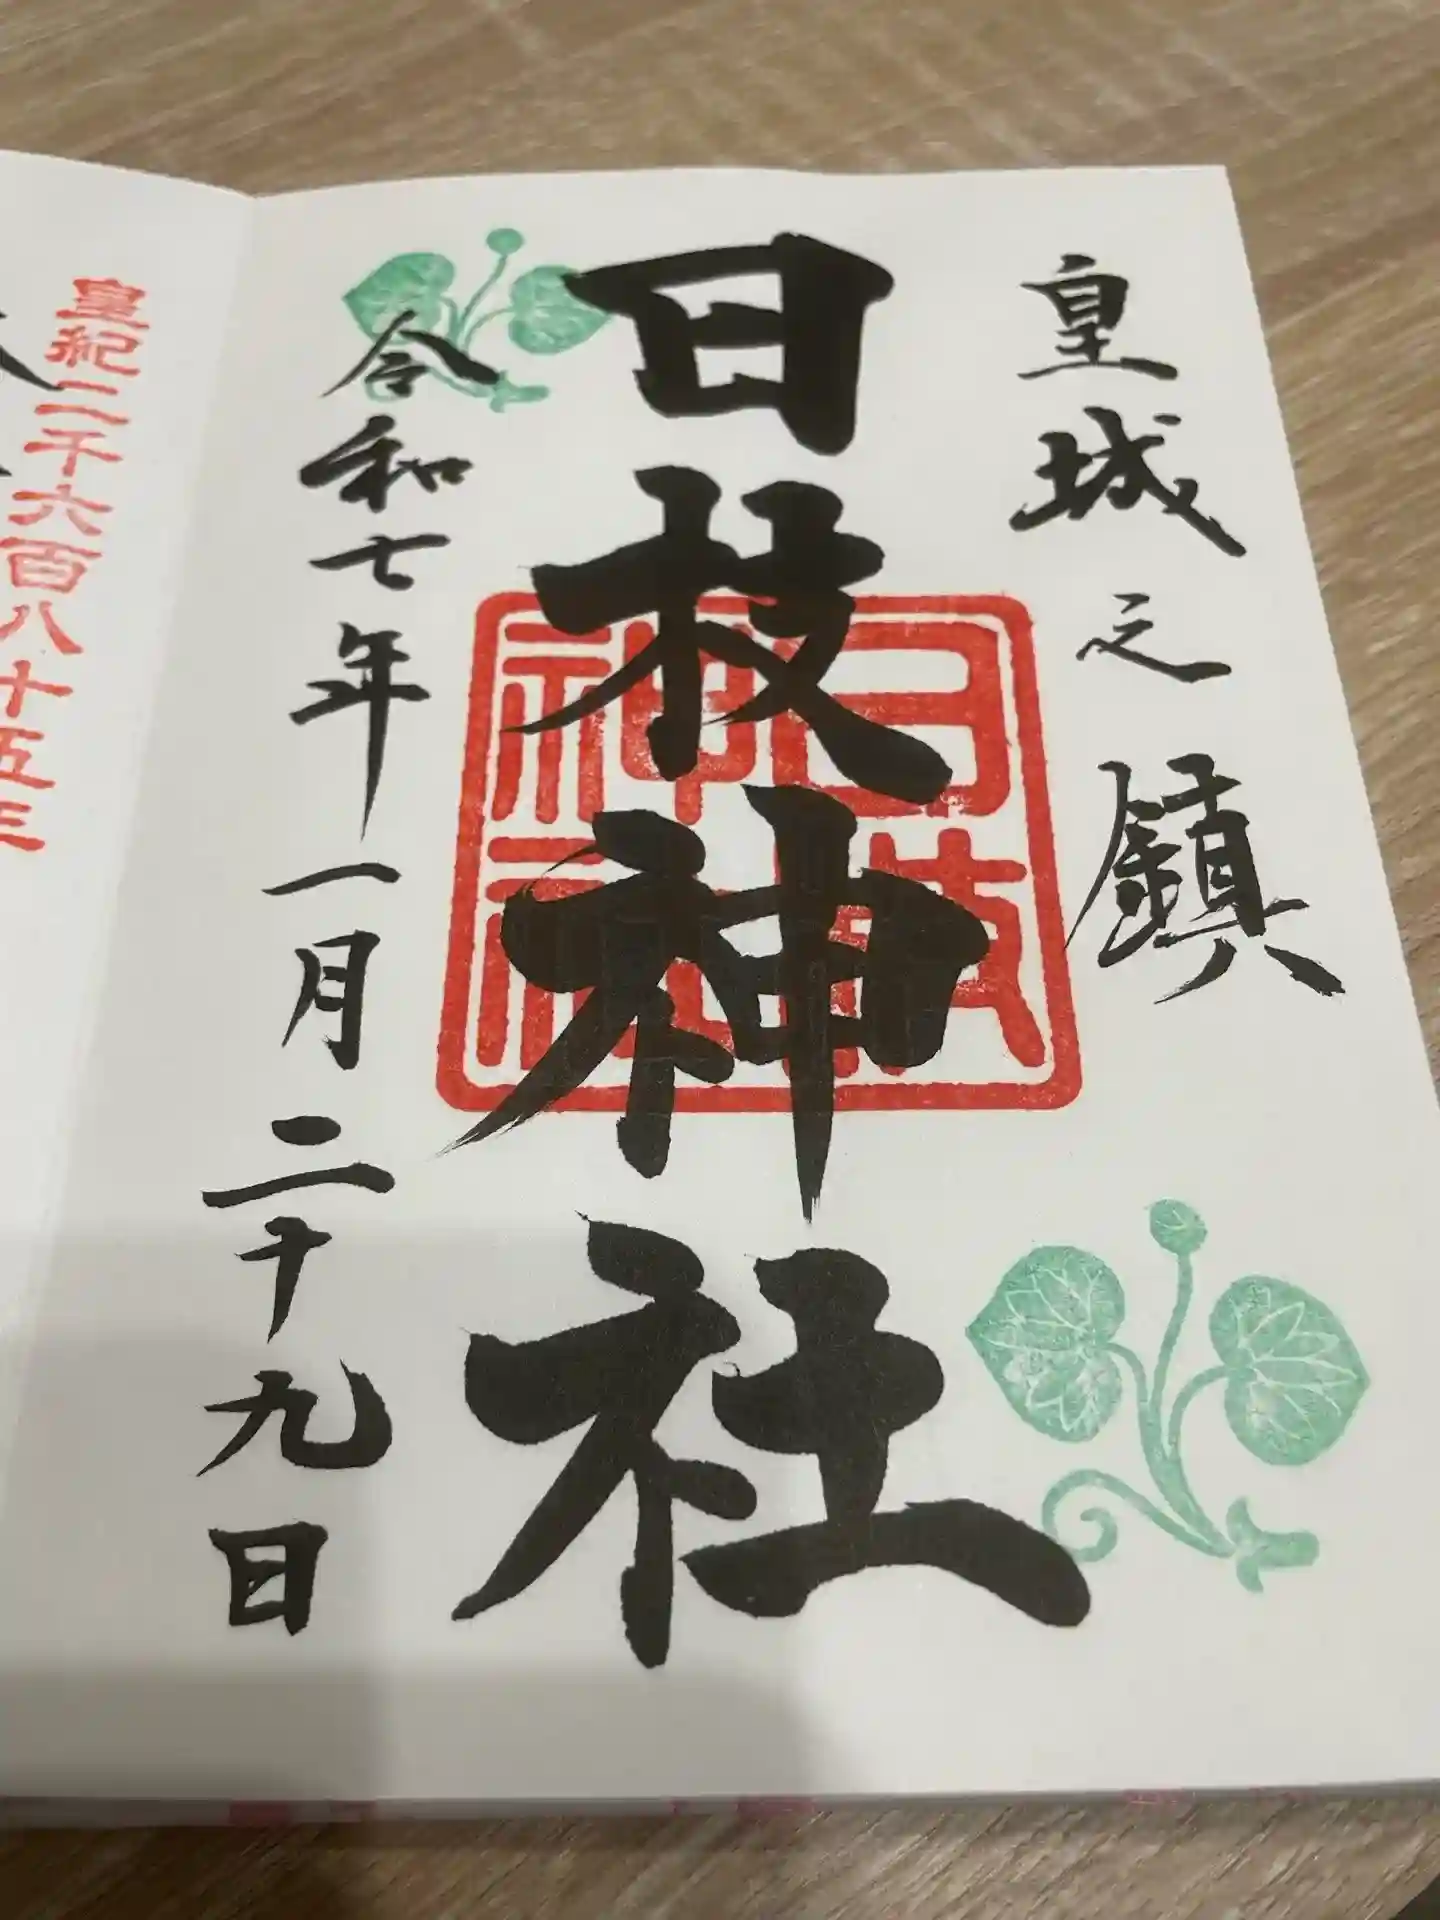 皇城之鎮
日枝神社
日枝
神社
令和七年一月二十九日
皇紀二千六百八十五年